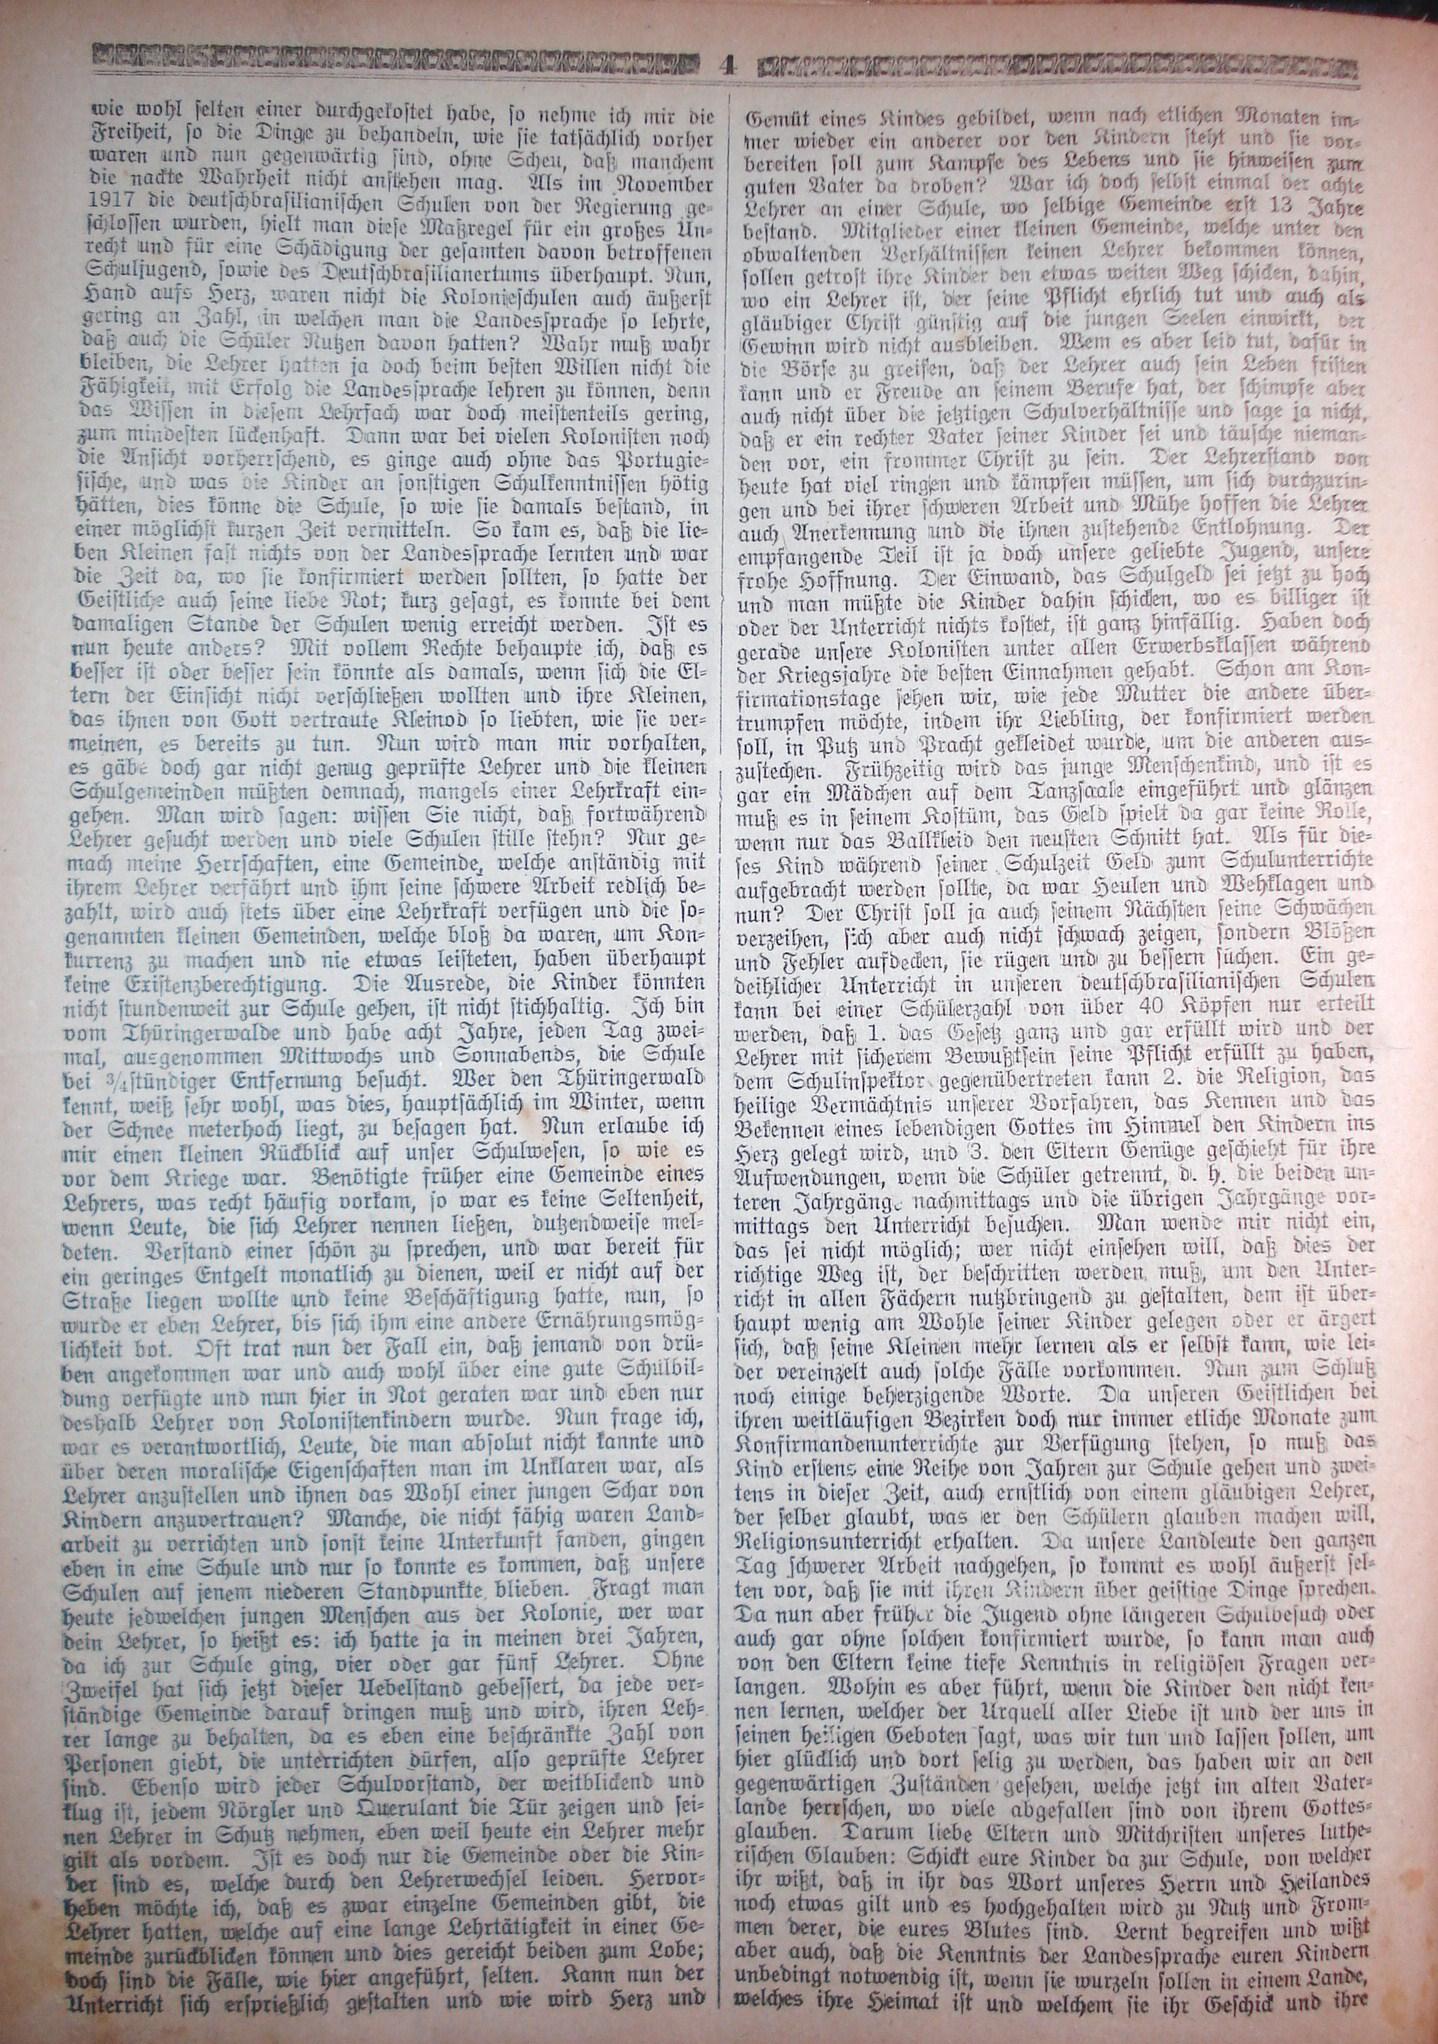 4
wie wohl selten einer durchgekostet habe, so nehme ich mir die
Freiheit, so die Dinge zu behandeln, wie sie tatsächlich vorher
waren und nun gegenwärtig sind, ohne Scheu, daß manchem
die nackte Wahrheit nicht anstehen mag. Als im November
1917 die deutschbrasilianischen Schulen von der Regierung ge-
schlossen wurden, hielt man diese Maßregel für ein großes Un-
recht und für eine Schädigung der gesamten davon betroffenen
Schuljugend, sowie des Deutschbrasilianertums überhaupt. Nun,
Hand aufs Herz, waren nicht die Kolonieschulen auch äußerst
gering an Zahl, in welchen man die Landessprache so lehrte,
daß auch die Schüler Nutzen davon hatten? Wahr muß wahr
bleiben, die Lehrer hatten ja doch beim besten Willen nicht die
Fähigkeit, mit Erfolg die Landessprache lehren zu können, denn
das Wissen in diesem Lehrfach war doch meistenteils gering,
zum mindesten lückenhaft. Dann war bei vielen Kolonisten noch
die Ansicht vorherrschend, es ginge auch ohne das Portugie-
sische, und was die Kinder an sonstigen Schulkenntnissen hötig
hätten, dies könne die Schule, so wie sie damals bestand, in
einer möglichst kurzen Zeit vermitteln. So kam es, daß die lie-
ben Kleinen fast nichts von der Landessprache lernten und war
die Zeit da, wo sie konfirmiert werden sollten, so hatte der
Geistliche auch seine liebe Not; kurz gesagt, es konnte bei dem
damaligen Stande der Schulen wenig erreicht werden. Ist es
nun heute anders? Mit vollem Rechte behaupte ich, daß es
besser ist oder besser sein könnte als damals, wenn sich die El-
tern der Einsicht nicht verschließen wollten und ihre Kleinen,
das ihnen von Gott vertraute Kleinod so liebten, wie sie ver-
meinen, es bereits zu tun. Nun wird man mir vorhalten,
es gäbe doch gar nicht genug geprüfte Lehrer und die kleinen
Schulgemeinden müßten demnach, mangels einer Lehrkraft ein-
gehen. Man wird sagen: wissen Sie nicht, daß fortwährend
Lehrer gesucht werden und viele Schulen stille stehn? Nur ge-
mach meine Herrschaften, eine Gemeinde, welche anständig mit
ihrem Lehrer verfährt und ihm seine schwere Arbeit redlich be-
zahlt, wird auch stets über eine Lehrkraft verfügen und die so-
genannten kleinen Gemeinden, welche bloß da waren, um Kon-
kurrenz zu machen und nie etwas leisteten, haben überhaupt
keine Existenzberechtigung. Die Ausrede, die Kinder könnten
nicht stundenweit zur Schule gehen, ist nicht stichhaltig. Ich bin
vom Thüringerwalde und habe acht Jahre, jeden Tag zwei-
mal, ausgenommen Mittwochs und Sonnabends, die Schule
bei ¾stündiger Entfernung besucht. Wer den Thüringerwald
kennt, weiß sehr wohl, was dies, hauptsächlich im Winter, wenn
der Schnee meterhoch liegt, zu besagen hat. Nun erlaube ich
mir einen kleinen Rückblick auf unser Schulwesen, so wie es
vor dem Kriege war. Benötigte früher eine Gemeinde eines
Lehrers, was recht häufig vorkam, so war es keine Seltenheit,
wenn Leute, die sich Lehrer nennen ließen, dutzendweise mel-
deten. Verstand einer schön zu sprechen, und war bereit für
ein geringes Entgelt monatlich zu dienen, weil er nicht auf der
Straße liegen wollte und keine Beschäftigung hatte, nun, so
wurde er eben Lehrer, bis sich ihm eine andere Ernährungsmög-
lichkeit bot. Oft trat nun der Fall ein, daß jemand von drü-
ben angekommen war und auch wohl über eine gute Schulbil-
dung verfügte und nun hier in Not geraten war und eben nur
deshalb Lehrer von Kolonistenkindern wurde. Nun frage ich,
war es verantwortlich, Leute, die man absolut nicht kannte und
über deren moralische Eigenschaften man im Unklaren war, als
Lehrer anzustellen und ihnen das Wohl einer jungen Schar von
Kindern anzuvertrauen? Manche, die nicht fähig waren Land-
arbeit zu verrichten und sonst keine Unterkunft fanden, gingen
eben in eine Schule und nur so konnte es kommen, daß unsere
Schulen auf jenem niederen Standpunkte blieben. Fragt man
heute jedwelchen jungen Menschen aus der Kolonie, wer war
dein Lehrer, so heißt es: ich hatte ja in meinen drei Jahren,
da ich zur Schule ging, vier oder gar fünf Lehrer. Ohne
Zweifel hat sich jetzt dieser Uebelstand gebessert, da jede ver-
ständige Gemeinde darauf dringen muß und wird, ihren Leh-
rer lange zu behalten, da es eben eine beschränkte Zahl von
Personen giebt, die unterrichten dürfen, also geprüfte Lehrer
sind. Ebenso wird jeder Schulvorstand, der weitblickend und
klug ist, jedem Nörgler und Querulant die Tür zeigen und sei-
nen Lehrer in Schutz nehmen, eben weil heute ein Lehrer mehr
gilt als vordem. Ist es doch nur die Gemeinde oder die Kin-
der sind es, welche durch den Lehrerwechsel leiden. Hervor-
heben möchte ich, daß es zwar einzelne Gemeinden gibt, die
Lehrer hatten, welche auf eine lange Lehrtätigkeit in einer Ge-
meinde zurückblicken können und dies gereicht beiden zum Lobe;
doch sind die Fälle, wie hier angeführt, selten. Kann nun der
Unterricht sich ersprießlich gestalten und wie wird Herz und
Gemüt eines Kindes gebildet, wenn nach etlichen Monaten im-
mer wieder ein anderer vor den Kindern steht und sie vor-
bereiten soll zum Kampfe des Lebens und sie hinweisen zum
guten Vater da droben? War ich doch selbst einmal der achte
Lehrer an einer Schule, wo selbige Gemeinde erst 13 Jahre
bestand. Mitglieder einer kleinen Gemeinde, welche unter den
obwaltenden Verhältnissen keinen Lehrer bekommen können,
sollen getrost ihre Kinder den etwas weiten Weg schicken, dahin,
wo ein Lehrer ist, der seine Pflicht ehrlich tut und auch als
gläubiger Christ günstig auf die jungen Seelen einwirkt, der
Gewinn wird nicht ausbleiben. Wem es aber leid tut, dafür in
die Börse zu greifen, daß der Lehrer auch sein Leben fristen
kann und er Freude an seinem Berufe hat, der schimpfe aber
auch nicht über die jetztigen Schulverhältnisse und sage ja nicht,
daß er ein rechter Vater seiner Kinder sei und täusche nieman-
den vor, ein frommer Christ zu sein. Der Lehrerstand von
heute hat viel ringen und kämpfen müssen, um sich durchzurin-
gen und bei ihrer schweren Arbeit und Mühe hoffen die Lehrer
auch Anerkennung und die ihnen zustehende Entlohnung. Der
empfangende Teil ist ja doch unsere geliebte Jugend, unsere
frohe Hoffnung. Der Einwand, das Schulgeld sei jetzt zu hoch
und man müßte die Kinder dahin schicken, wo es billiger ist
oder der Unterricht nichts kostet, ist ganz hinfällig. Haben doch
gerade unsere Kolonisten unter allen Erwerbsklassen während
der Kriegsjahre die besten Einnahmen gehabt. Schon am Kon-
firmationstage sehen wir, wie jede Mutter die andere über-
trumpfen möchte, indem ihr Liebling, der konfirmiert werden
soll, in Putz und Pracht gekleidet wurde, um die anderen aus-
zustechen. Frühzeitig wird das junge Menschenkind, und ist es
gar ein Mädchen auf dem Tanzsaale eingeführt und glänzen
muß es in seinem Kostüm, das Geld spielt da gar keine Rolle,
wenn nur das Ballkleid den neusten Schnitt hat. Als für die-
ses Kind während seiner Schulzeit Geld zum Schulunterrichte
aufgebracht werden sollte, da war Heulen und Wehklagen und
nun? Der Christ soll ja auch seinem Nächsten seine Schwächen
verzeihen, sich aber auch nicht schwach zeigen, sondern Blößen
und Fehler aufdecken, sie rügen und zu bessern suchen. Ein ge-
deihlicher Unterricht in unseren deutschbrasilianischen Schulen
kann bei einer Schülerzahl von über 40 Köpfen nur erteilt
werden, daß 1. das Gesetz ganz und gar erfüllt wird und der
Lehrer mit sicherem Bewußtsein seine Pflicht erfüllt zu haben,
dem Schulinspektor gegenübertreten kann 2. die Religion, das
heilige Vermächtnis unserer Vorfahren, das Kennen und das
Bekennen eines lebendigen Gottes im Himmel den Kindern ins
Herz gelegt wird, und 3. den Eltern Genüge geschieht für ihre
Aufwendungen, wenn die Schüler getrennt, d. h. die beiden un-
teren Jahrgänge nachmittags und die übrigen Jahrgänge vor-
mittags den Unterricht besuchen. Man wende mir nicht ein,
das sei nicht möglich; wer nicht einsehen will, daß dies der
richtige Weg ist, der beschritten werden muß, um den Unter-
richt in allen Fächern nutzbringend zu gestalten, dem ist über-
haupt wenig am Wohle seiner Kinder gelegen oder er ärgert
sich, daß seine Kleinen mehr lernen als er selbst kann, wie lei-
der vereinzelt auch solche Fälle vorkommen. Nun zum Schluß
noch einige beherzigende Worte. Da unseren Geistlichen bei
ihren weitläufigen Bezirken doch nur immer etliche Monate zum
Konfirmandenunterrichte zur Verfügung stehen, so muß das
Kind erstens eine Reihe von Jahren zur Schule gehen und zwei-
tens in dieser Zeit, auch ernstlich von einem gläubigen Lehrer,
der selber glaubt, was er den Schülern glauben machen will,
Religionsunterricht erhalten. Da unsere Landleute den ganzen
Tag schwerer Arbeit nachgehen, so kommt es wohl äußerst sel-
ten vor, daß sie mit ihren Kindern über geistige Dinge sprechen.
Da nun aber früher die Jugend ohne längeren Schulbesuch oder
auch gar ohne solchen konfirmiert wurde, so kann man auch
von den Eltern keine tiefe Kenntnis in religiösen Fragen ver-
langen. Wohin es aber führt, wenn die Kinder den nicht ken-
nen lernen, welcher der Urquell aller Liebe ist und der uns in
seinen heiligen Geboten sagt, was wir tun und lassen sollen, um
hier glücklich und dort selig zu werden, das haben wir an den
gegenwärtigen Zuständen gesehen, welche jetzt im alten Vater-
lande herrschen, wo viele abgefallen sind von ihrem Gottes-
glauben. Darum liebe Eltern und Mitchristen unseres luthe-
rischen Glauben: Schickt eure Kinder da zur Schule, von welcher
ihr wißt, daß in ihr das Wort unseres Herrn und Heilandes
noch etwas gilt und es hochgehalten wird zu Nutz und From-
men derer, die eures Blutes sind. Lernt begreifen und wißt
aber auch, daß die Kenntnis der Landessprache euren Kindern
unbedingt notwendig ist, wenn sie wurzeln sollen in einem Lande,
welches ihre Heimat ist und welchem sie ihr Geschick und ihre